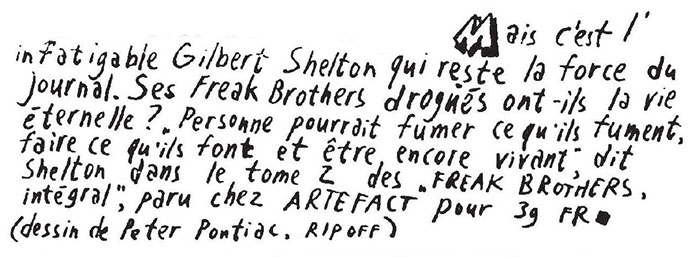 Mais c'est l'
infatigable Gilbert Shelton qui reste la force du
journal. Ses Freak Brothers drogués ont-ils la vie
éternelle? "Personne pourrait fumer ce qu'ils fument,
faire ce qu'ils font et être encore vivant", dit
Shelton dans le tome 2 des "FREAK BROTHERS,
intégral", paru chez ARTEFACT pour 39 FR.
(dessin de Peter Pontiac, RIPOFF)